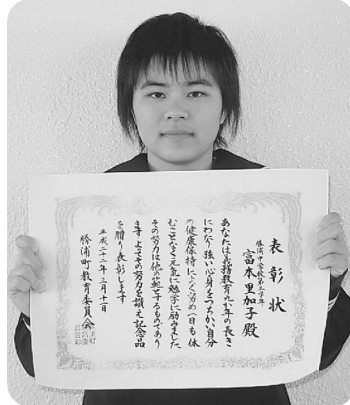 表彰状
勝浦中学校第三学年
富本里加子殿
あなたは義務教育九か年の長き
にわたり強い心身をつちかい自分
の健康保持につとめ一日も休
むことなく元気に勉学に励みました
その努力は他の範とするものであり
ますよってその努力を讃え記念品
を贈り表彰します
平成二十二年三月十一日
勝浦町教育委員会